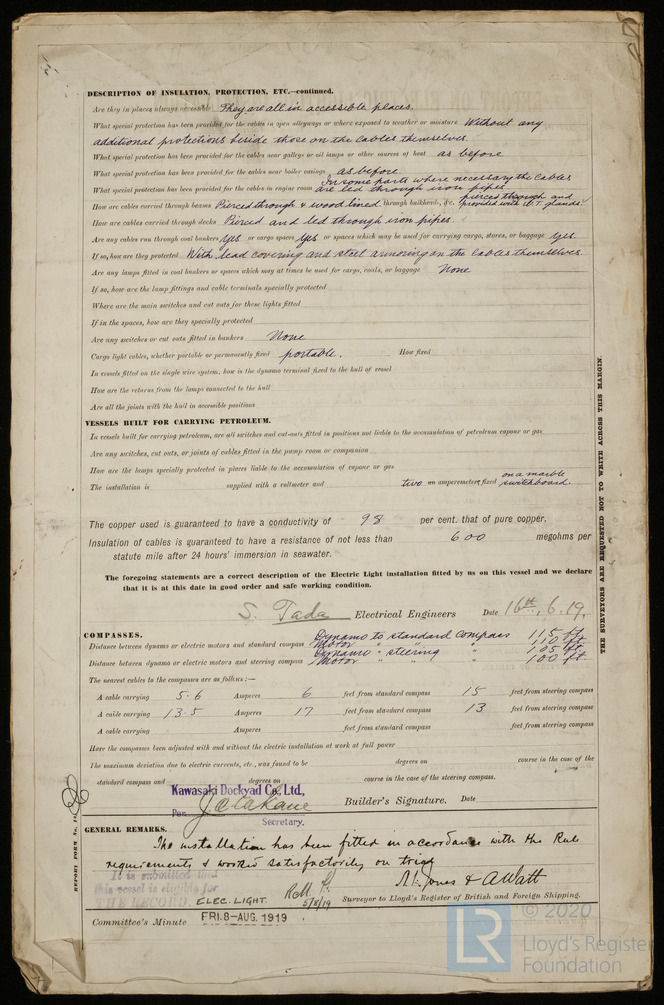 DESCRIPTION OF INSULATION, PROTECTION, ETC.—continued.
Are they in places always accessible They are all in accessible places.
What special protection has been provided for the cables in open alleyways or where exposed to weather or moisture Without any
additional protections beside those on the cables themselves.
What special protection has been provided for the cables near galleys or oil lamps or other sources of heat as before
What special protection has been provided for the cables near boiler casings as before.
What special protection has been provided for the cables in engine room In some parts where necessary the cables are led through iron pipes
How are cables carried through beams Pierced through & wood lined through bulkheads, &c. pierced through and provided with W.T. glands.
How are cables carried through decks Pierced and led through iron pipes.
Are any cables run through coal bunkers Yes or cargo spaces Yes or spaces which may be used for carrying cargo, stores, or baggage Yes
If so, how are they protected With lead covering and steel armoring on the cables themselves.
Are any lamps fitted in coal bunkers or spaces which may at times be used for cargo, coals, or baggage None
If so, how are the lamp fittings and cable terminals specially protected
Where are the main switches and cut outs for these lights fitted
If in the spaces, how are they specially protected
Are any switches or cut outs fitted in bunkers None
Cargo light cables, whether portable or permanently fixed portable. How fixed
In vessels fitted on the single wire system, how is the dynamo terminal fixed to the hull of vessel
How are the returns from the lamps connected to the hull
Are all the joints with the hull in accessible positions
VESSELS BUILT FOR CARRYING PETROLEUM.
In vessels built for carrying petroleum, are all switches and cut-outs fitted in positions not liable to the accumulation of petroleum vapour or gas
Are any switches, cut outs, or joints of cables fitted in the pump room or companion
How are the lamps specially protected in places liable to the accumulation of vapour or gas
The installation is supplied with a voltmeter and two an amperemeter, fixed on a marble switchboard.
The copper used is guaranteed to have a conductivity of 98 per cent. that of pure copper.
Insulation of cables is guaranteed to have a resistance of not less than 600 megohms per
statute mile after 24 hours' immersion in seawater.
The foregoing statements are a correct description of the Electric Light installation fitted by us on this vessel and we declare
that it is at this date in good order and safe working condition.
S. Tada Electrical Engineers Date 16th, 6. 19.
COMPASSES.
Dynamo to standard Compass 115 ft.
Distance between dynamo or electric motors and standard compass Motor " " " 110 ft.
Dynamo " steering " 105 ft.
Distance between dynamo or electric motors and steering compass Motor " " " 100 ft.
The nearest cables to the compasses are as follows:—
A cable carrying 5.6 Amperes 6 feet from standard compass 15 feet from steering compass
A cable carrying 13.5 Amperes 17 feet from standard compass 13 feet from steering compass
A cable carrying Amperes feet from standard compass feet from steering compass
Have the compasses been adjusted with and without the electric installation at work at full power
The maximum deviation due to electric currents, etc., was found to be degrees on course in the case of the
standard compass and degrees on course in the case of the steering compass.
Kawasaki Dockyad Co., Ltd.,
Per Builder's Signature. Date
Secretary.
GENERAL REMARKS.
The installation has been fitted in accordance with the Rule
requirements & worked satisfactorily on trial
It is submitted that
this vessel is eligible for
THE RECORD. ELEC. LIGHT. 5/8/19
Jones & A Watt
Surveyor to Lloyd's Register of British and Foreign Shipping.
Committee's Minute FRI. 8 - AUG. 1919
THE SURVEYORS ARE REQUESTED NOT TO WRITE ACROSS THIS MARGIN.
REPORT FORM No.
© 2020
LR
Lloyd's Register
Foundation